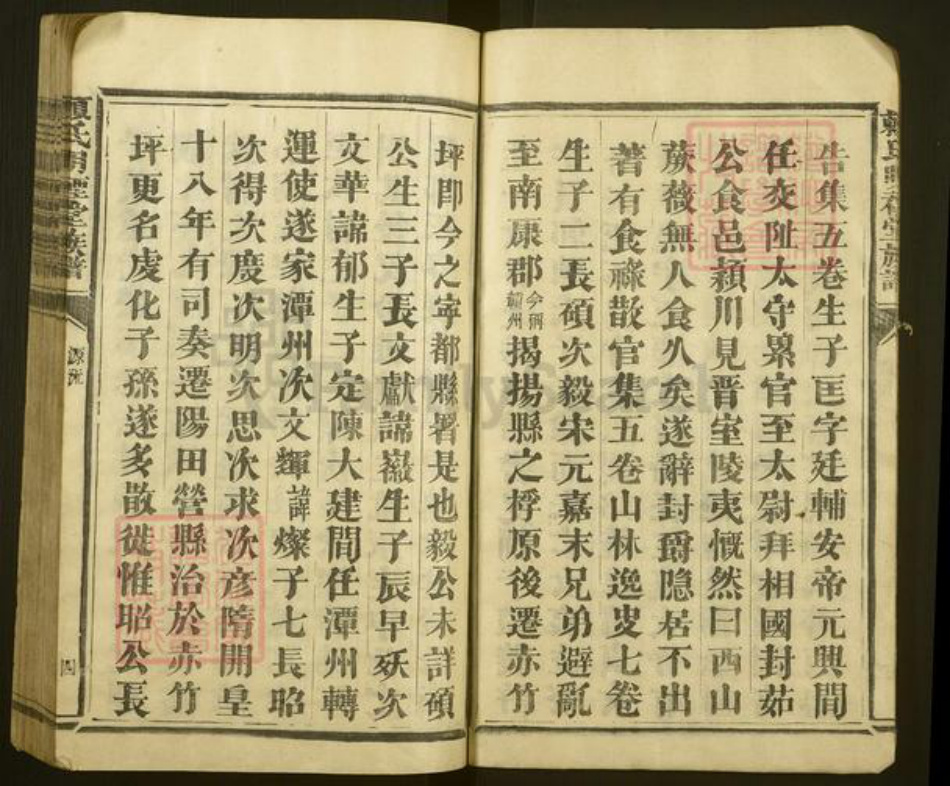 告集五卷生子匡字廷輔安帝元興間
任交阯太守累官至太尉拜相國封茹
公食邑潁川見晋室陵夷慨然曰西山
蕨薇無人食久矣遂辭封爵隐居不出
著有食祿散官集五卷山林逸叟七卷
生子二長碩次毅宋元嘉末兄弟避亂
至南康郡今稱贛州揭揚縣之桴原後遷赤竹
坪卽今之寧都縣署是也毅公未詳碩
公生三子長文獻諱嶽生子辰早殀次
文華諱郁生子定陳大建間任潭州轉
運使遂家潭州次文輝諱燦子七長昭
次得次度次明次思次求次彦隋開皇
十八年有司奏遷陽田營縣治於赤竹
坪更名虔化子孫遂多散徙惟昭公長
源流
四